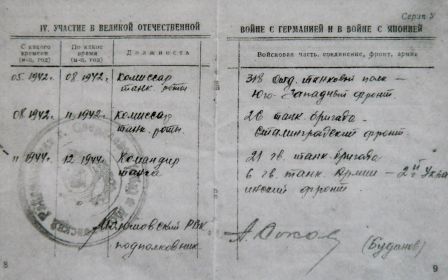 Серия У
IV. УЧАСТИЕ В ВЕЛИКОЙ ОТЕЧЕСТВЕННОЙ
ВОЙНЕ С ГЕРМАНИЕЙ И В ВОЙНЕ С ЯПОНИЕЙ
С какого времени (м-ц, год)
По какое время (м-ц, год)
Должность
Войсковая часть, соединение, фронт, армия
05.1942г. 08 1942г. Комиссар
танк. роты
отд. танковый полк –
Юго-Западный фронт
08 1942г. 11 1942г. комиссар
танк. роты
26 танк. бригада
Сталинградский фронт.
11 1944г. 12 1944г. Командир
танка
21 гв. танк. бригада
6 гв. танк. армии – 2й Укра
инский фронт.
РВК
подполковник
(Буданов)
8
9